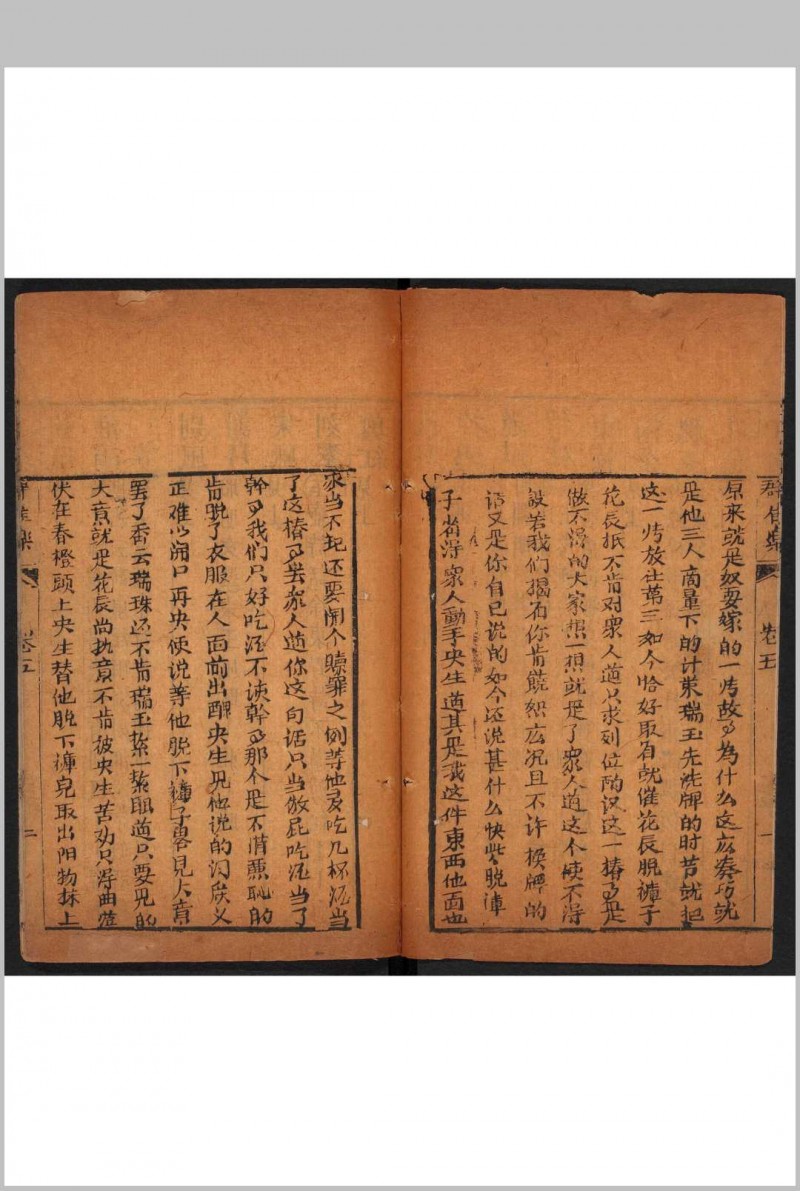 群佳樂 卷五 一
原来就是奴要嫁的一将故事為什么这広凑巧就
是他三人商量下的计策瑞玉先洗牌的时节就把
这一将放在第三如今恰好取着就催花辰脱褲子
花辰抵不肯对眾人道只求列位酌议这一樁事是
做不得的大家想一想就是了眾人道这个使不得
設若我们揭着你肯饒恕広况且不许换牌的
话又是你自已说的如今还说甚什么快些脱
子省得眾人動手央生道其是我这件東西他面也
承当不起还要開个贖罪之例等他多吃几杯酒当
了这樁事罢眾人道你这句话只当放屁吃酒当了
幹事我们只好吃酒不该幹事那个是不惜薫恥的
肯脱了衣服在人面前出醜央生見他说的闪疾又
正难以闹口再央便说等他脱下褲子畧見大意
罢了香云瑞珠还不肯瑞玉丢一丢眼道只要見的
大意就是花辰尚执意不肯被央生苦劝只得曲從
伏在春櫈頭上央生替他脱下褲兒取出阳物抹上
群佳樂 卷五 二